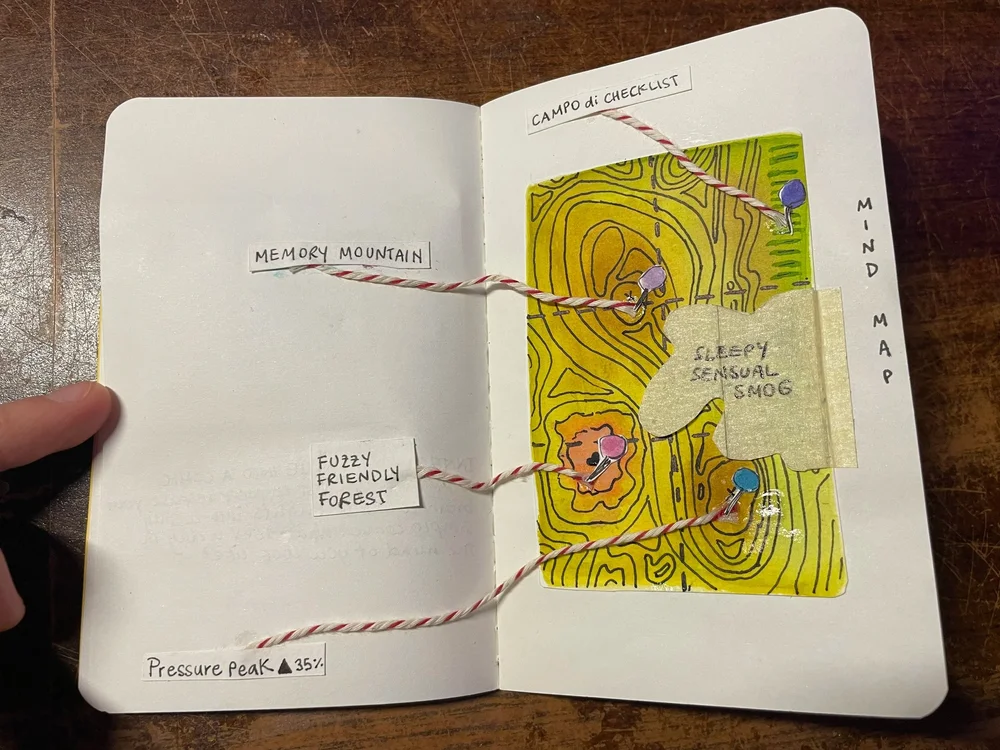 CAMPO di CHECKLIST
MEMORY MOUNTAIN
MIND MAP
SLEEPY
SENSUAL
SMOG
FUZZY
FRIENDLY
FOREST
Pressure Peak ▲35%